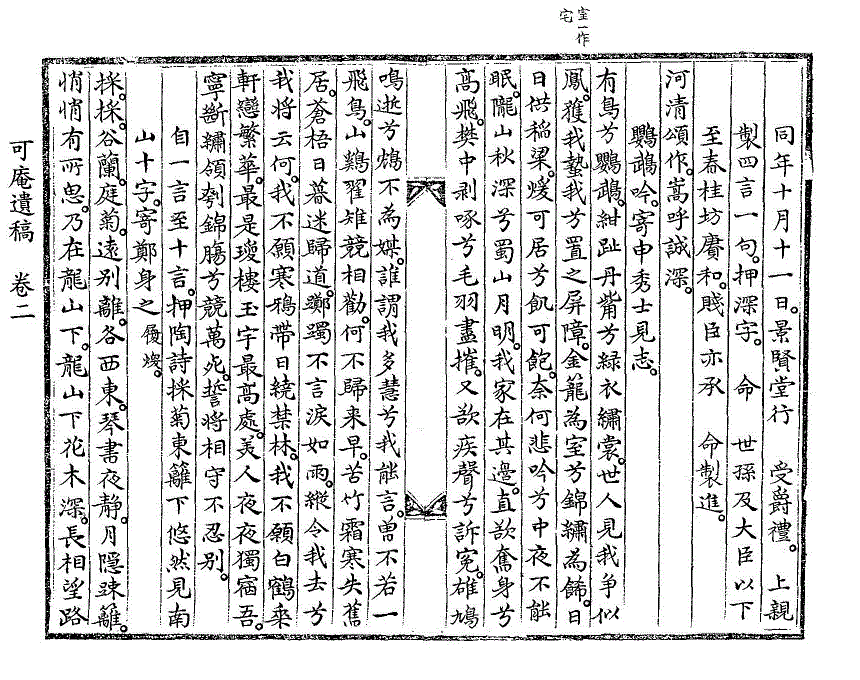 室一作
宅
同年十月十一日。景賢堂行 受爵禮。 上親
製四言一句。押深字。 命 世孫及大臣以下
至春桂坊賡和。賤臣亦承 命製進。
河清頌作。嵩呼誠深。
鸚鵡吟。寄申秀士見志。
有鳥兮鸚鵡。紺趾丹觜兮綠衣繡裳。世人見我爭似
鳳。獲我蟄我兮置之屏障。金籠爲室兮錦繡爲餙。日
日供稻粱。煖可居兮飢可飽。奈何悲吟兮中夜不能
眠。隴山秋深兮蜀山月明。我家在其邊。直欲奮身兮
高飛。樊中剥啄兮毛羽盡摧。又欲疾聲兮訴寃。雄鳩
鳴逝兮鴆不為媒。誰謂我多慧兮我能言。曾不若一
飛鳥。山鷄翟雉競相勸。何不歸来早。苦竹霜寒失舊
居。蒼梧日暮迷歸道。躑躅不言淚如雨。縱令我去兮
我將云何。我不願寒鴉帶日繞禁林。我不願白鶴乘
軒戀繁華。最是瓊樓玉宇最高處。美人夜夜獨宿吾。
寧斷繡領刳錦膓兮競萬死。誓將相守不忍别。
自一言至十言。押陶詩採菊東籬下悠然見南
山十字。寄鄭身之 履煥。
採。採。谷蘭。庭菊。遠别離。各西東。琴書夜靜。月隱踈籬。
悄悄有所思。乃在龍山下。龍山下花木深。長相望路
可庵遺稿 卷二